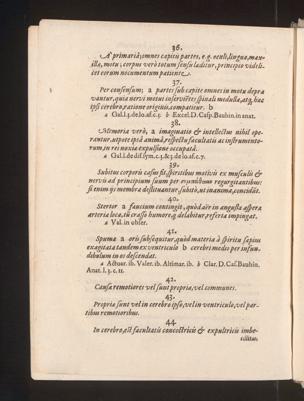 36.
A primariâ; omnes capitis partes, e.g. oculi, lingua, max-
illa, motu; corpus verò totum sensu læditur, principio videli-
cet eorum nocumentum patiente.
37.
Per consensum; a partes sub capite omnes in motu depra
vantur, quia nervi motui inservientes spinali medullâ, atq; hæc
ipsi cerebro, ratione originis, compatitur. b
a Gal. l. 3. de lo. af. c. 5. b Excel. D. Casp. Bauhin. in anat.
38.
Memoria verò, a imaginatio & intellectus nihil ope-
rantur, utpote ipsâ animâ, respectu facultatis ac instrumento-
rum, in rei noxiæ expulsione occupatâ.
a Gal. l. de dif. sym. c. 3. & 3. de lo. af. c. 7.
39.
Subitus corporis casus fit, spiritibus motivis ex musculis &
nervis ad principium suum per regurgitantibus:
si enim ijs membra destituantur, subitò, ut inanima, concidũt.
40.
Stertor a faucium contingit, quòd aër in angusta aspera
arteria loca, tũ crassis humorẽ, delabitur, referta impingat.
a Val. in obser.
41.
Spuma a oris subsequitur, quòd materia à spiritu sæpius
exagitata tandem ex ventriculo b cerebri medio per infun-
dibulum in os descendat.
a Actuar. ib. Valer. ib. Altimar. ib. b Clar. D. Cas. Bauhin.
Anat. l. 3. c. 11.
42.
Causæ remotiores vel sunt propriæ, vel communes.
43.
Propriæ sunt vel in cerebro ipso, vel in ventriculo, vel par-
tibus remotioribus.
44
In cerebro, est facultatis concoctricis & expultricis imbe-
cillitas